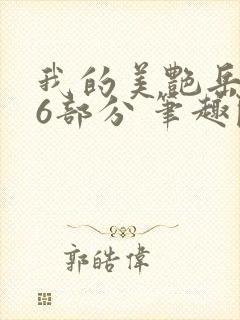 我的美艷岳
6部分 筆趣
郭皓偉